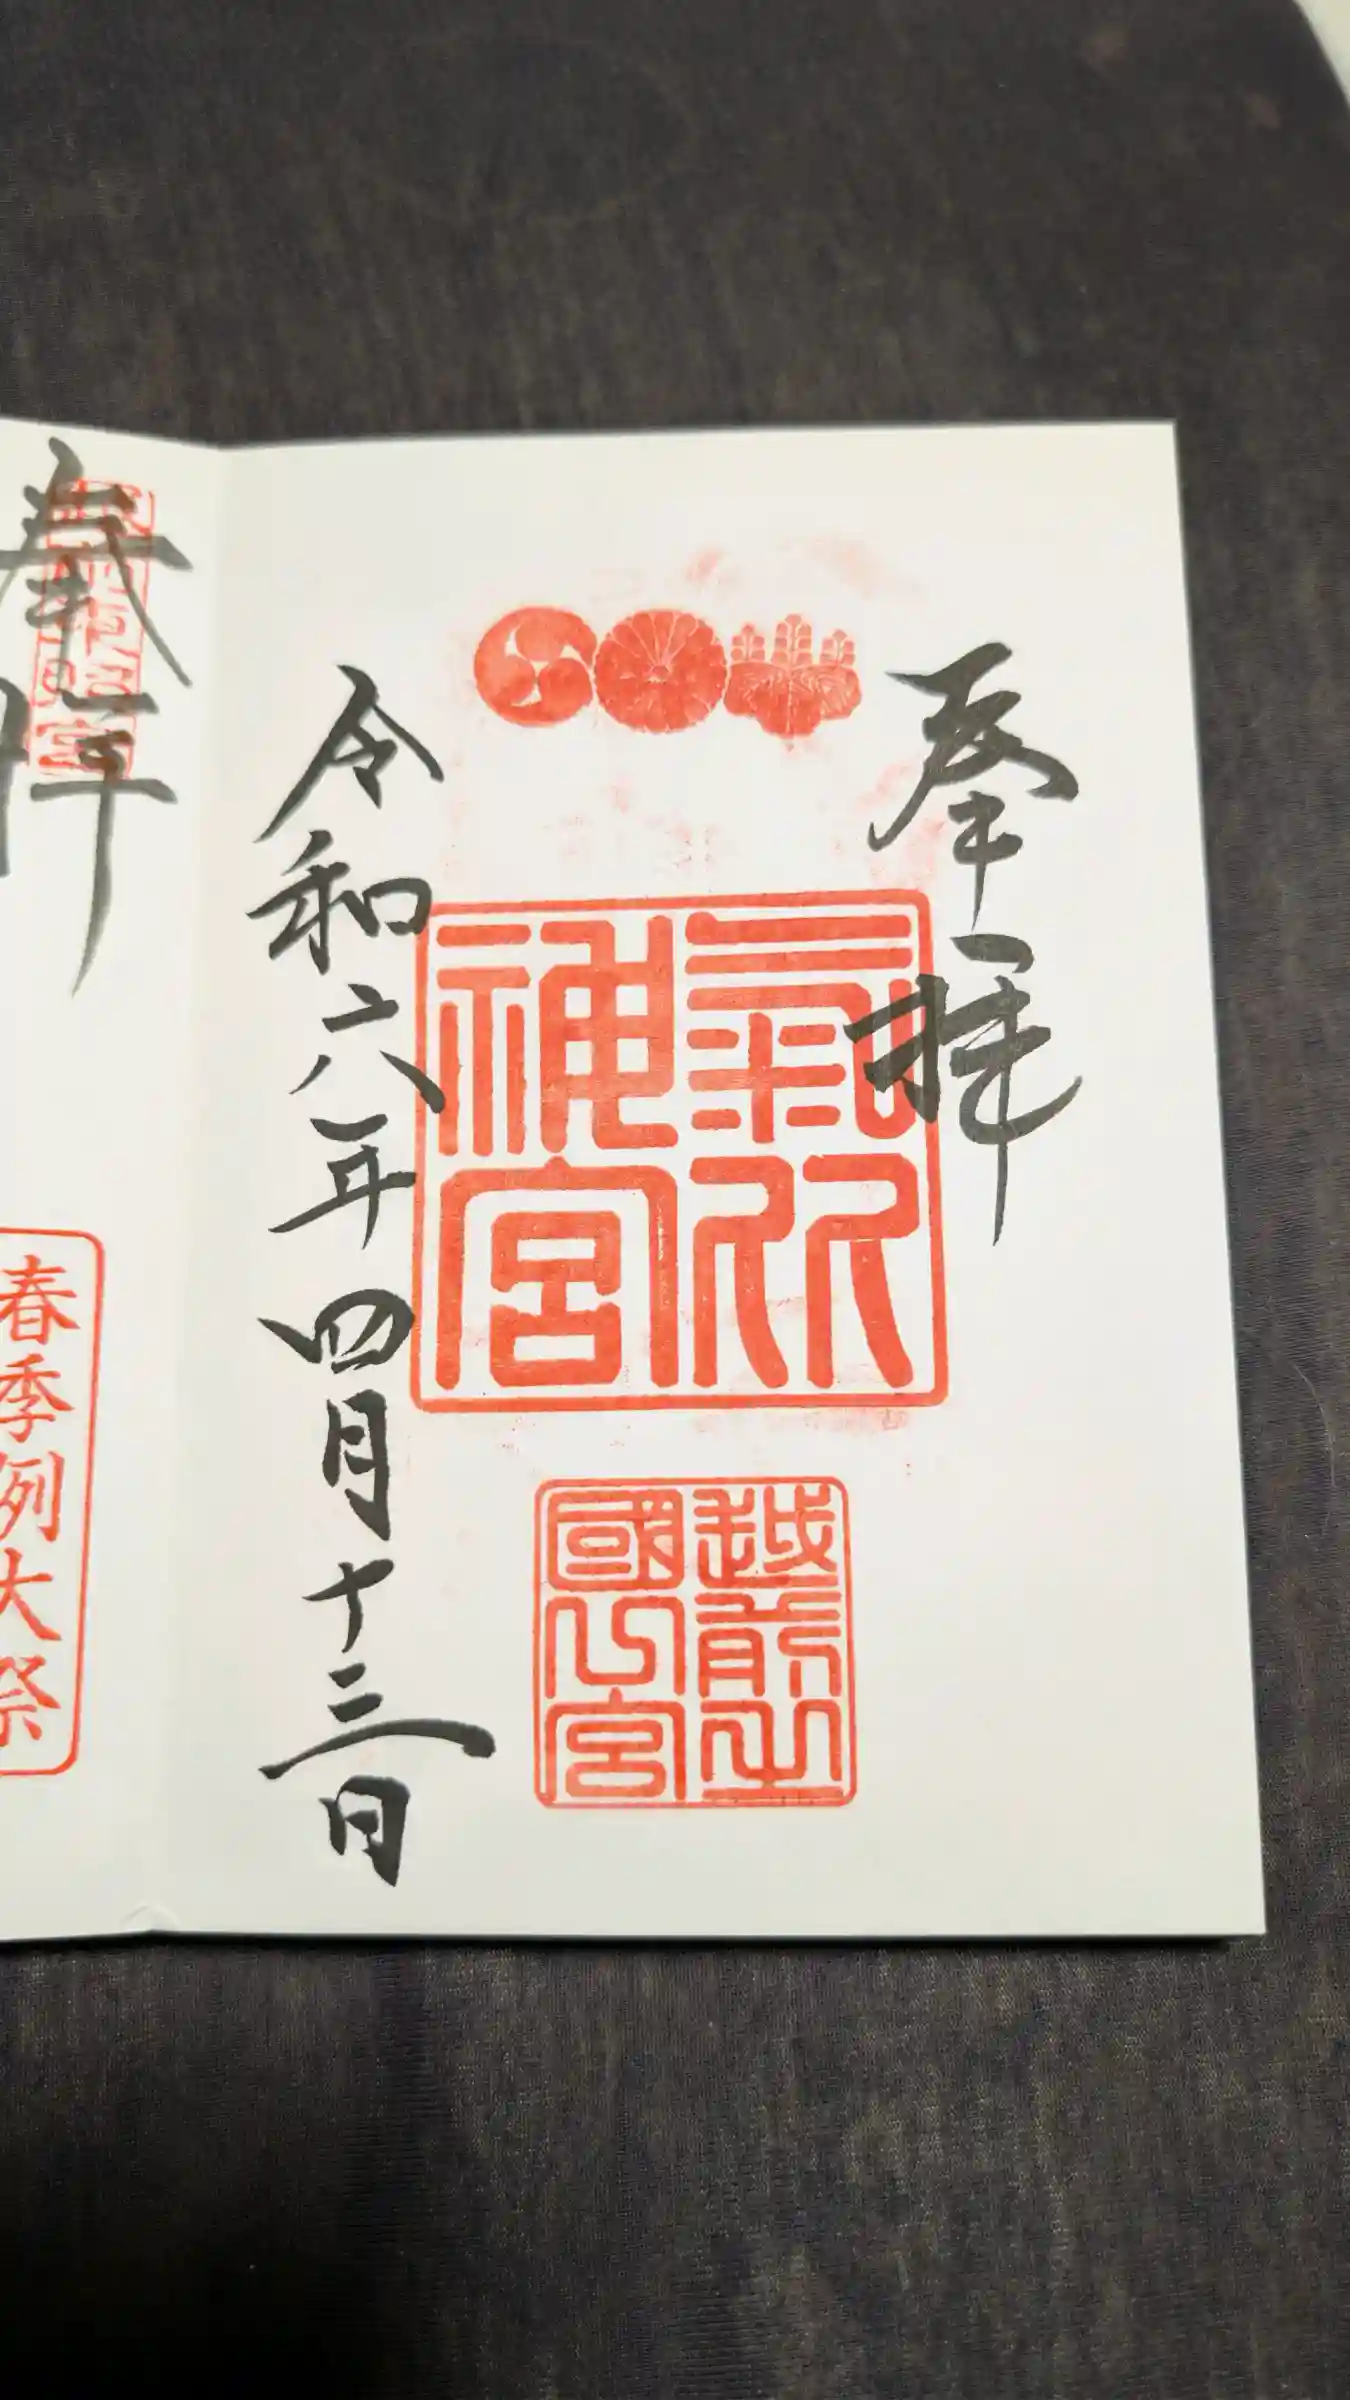 奉拝
氣比
神宮
越前
國
宮
令和六年四月十三日
奉拝
春季例大祭